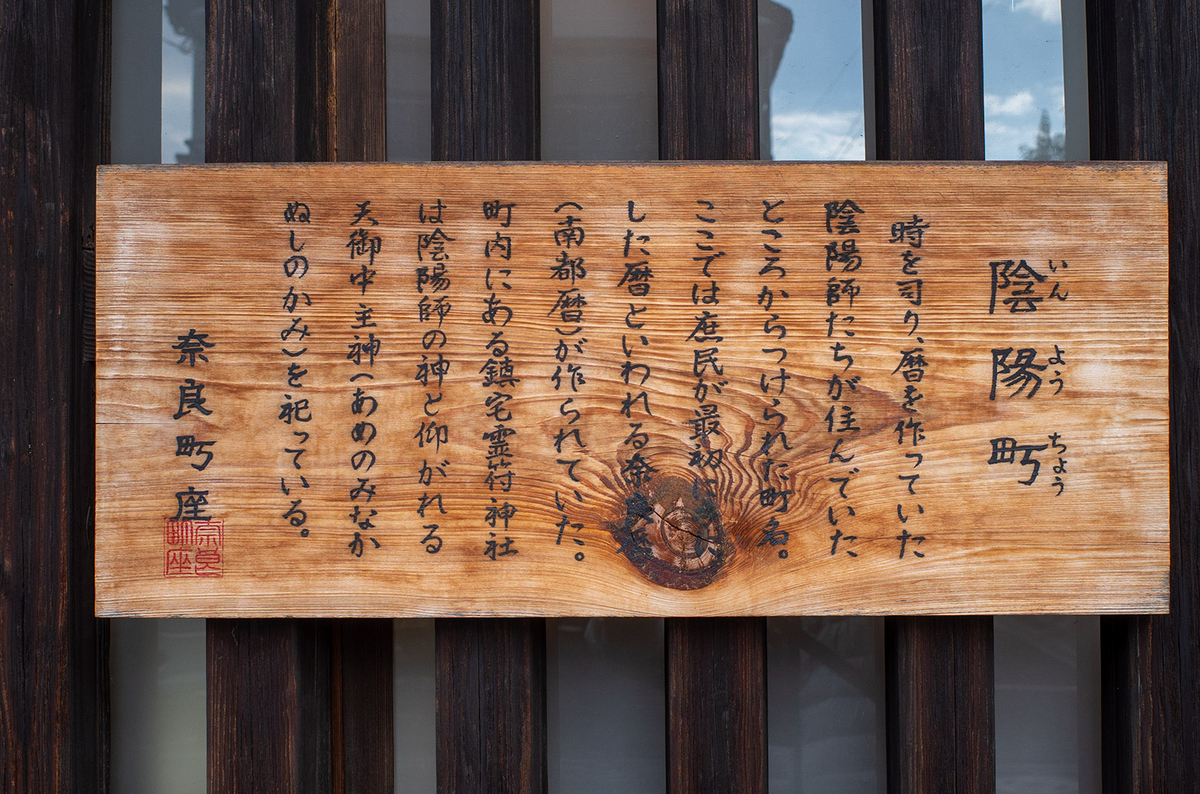 いん よう ちょう
陰陽町
時を司り、暦を作っていた
陰陽師たちが住んでいた
ところからつけられた町名。
ここでは庶民が最初に
した暦といわれる奈良暦
(南都暦)が作られていた。
町内にある鎮宅霊符神社
は陰陽師の神と仰がれる
天御中主神(あめのみなか
ぬしのかみ)を祀っている。
奈良町座
奈良
町座